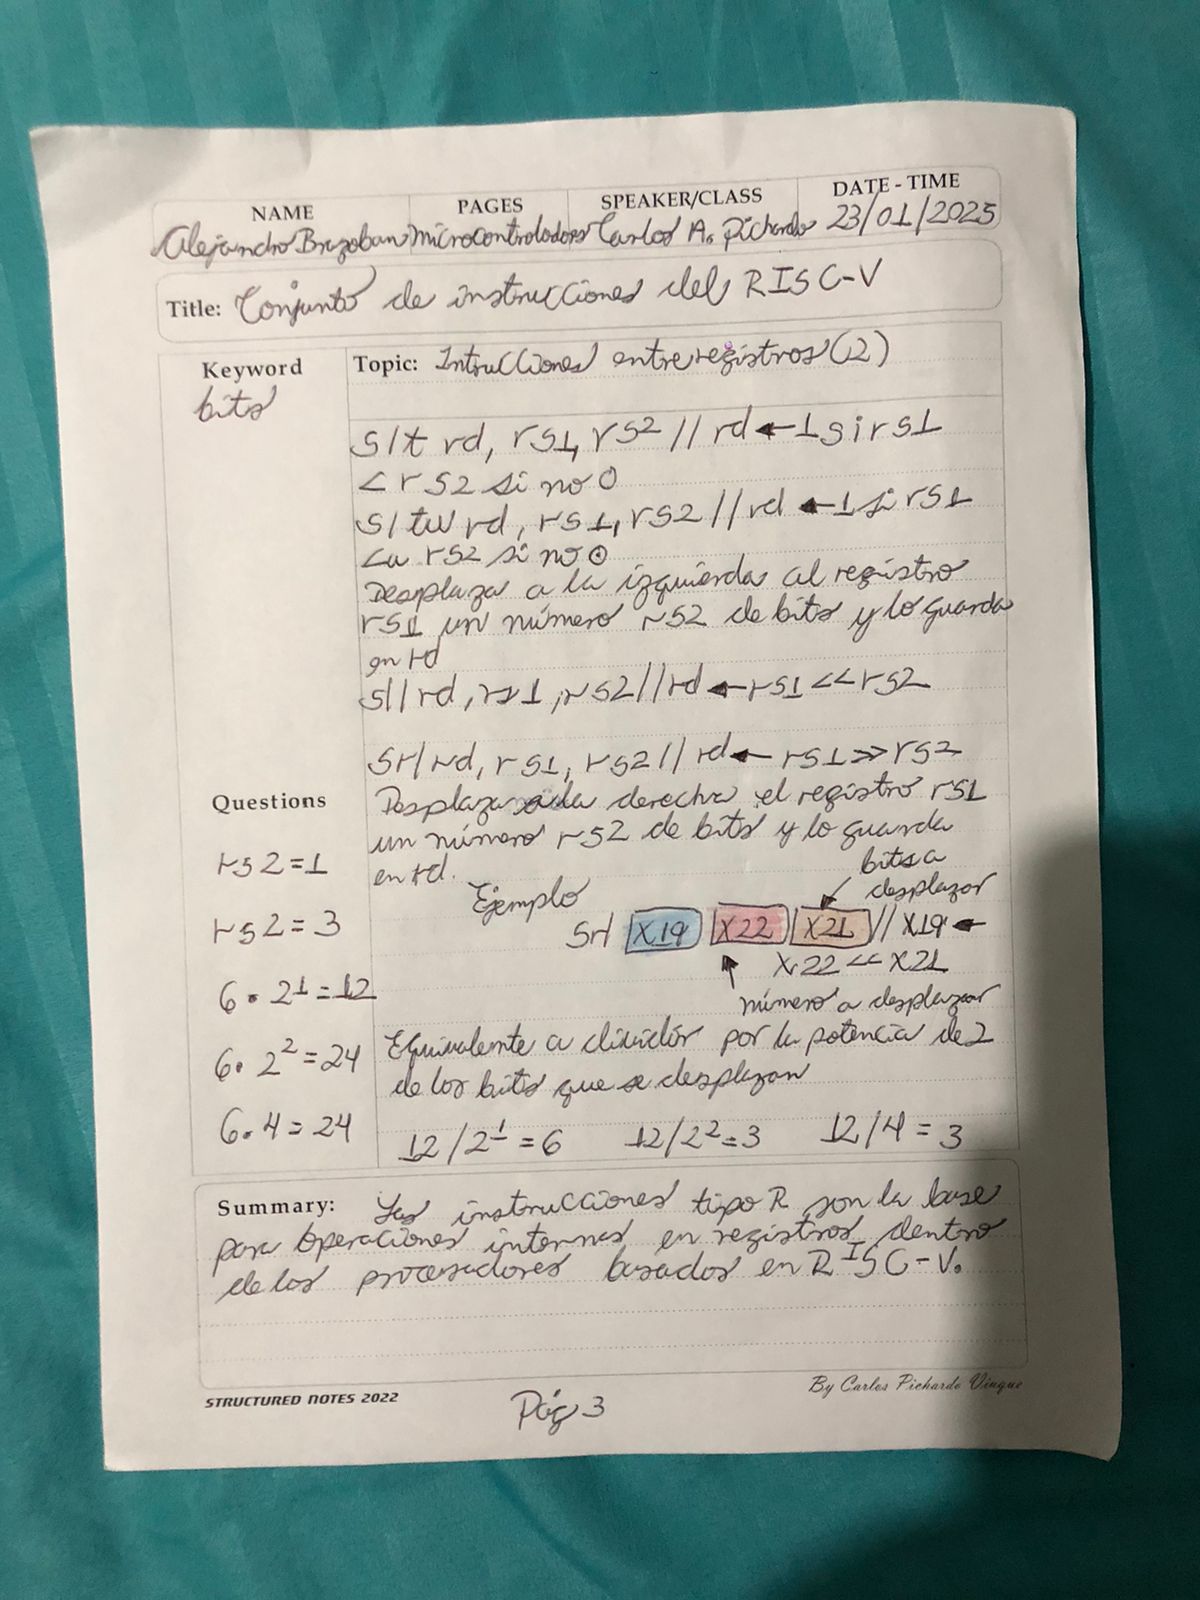 NAME PAGES SPEAKER/CLASS DATE - TIME
Alejandro Brazoban Microcontroladores Carlos A. Pichardo 23/01/2025
Title: Conjunto de instrucciones del RISC-V
Keyword
bits
Topic: Intrucciones entre registros (12)
slt rd, rs1, rs2 // rd ← 1 si rs1
< rs2 si no 0
sltu rd, rs1, rs2 // rd ← 1 si rs1
<u rs2 si no 0
Desplaza a la izquierda al registro
rs1 un número rs2 de bits y lo guarda
en rd
sll rd, rs1, rs2 // rd ← rs1 << rs2
Srl rd, rs1, rs2 // rd ← rs1 >> rs2
Desplaza a la derecha el registro rs1
un número rs2 de bits y lo guarda
en rd.
Ejemplo
bits a
desplazar
Srl X19 X22 X21 // X19 ←
X22 << X21
número a desplazar
Equivalente a dividir por la potencia de 2
de los bits que se desplazan
12/2¹ = 6 12/2² = 3 12/4 = 3
Questions
rs2 = 1
rs2 = 3
6 • 2¹ = 12
6 • 2² = 24
6 • 4 = 24
Summary: Las instrucciones tipo R son la base
para operaciones internas en registros dentro
de los procesadores basados en RISC-V.
STRUCTURED NOTES 2022
Pág 3
By Carlos Pichardo Vinque